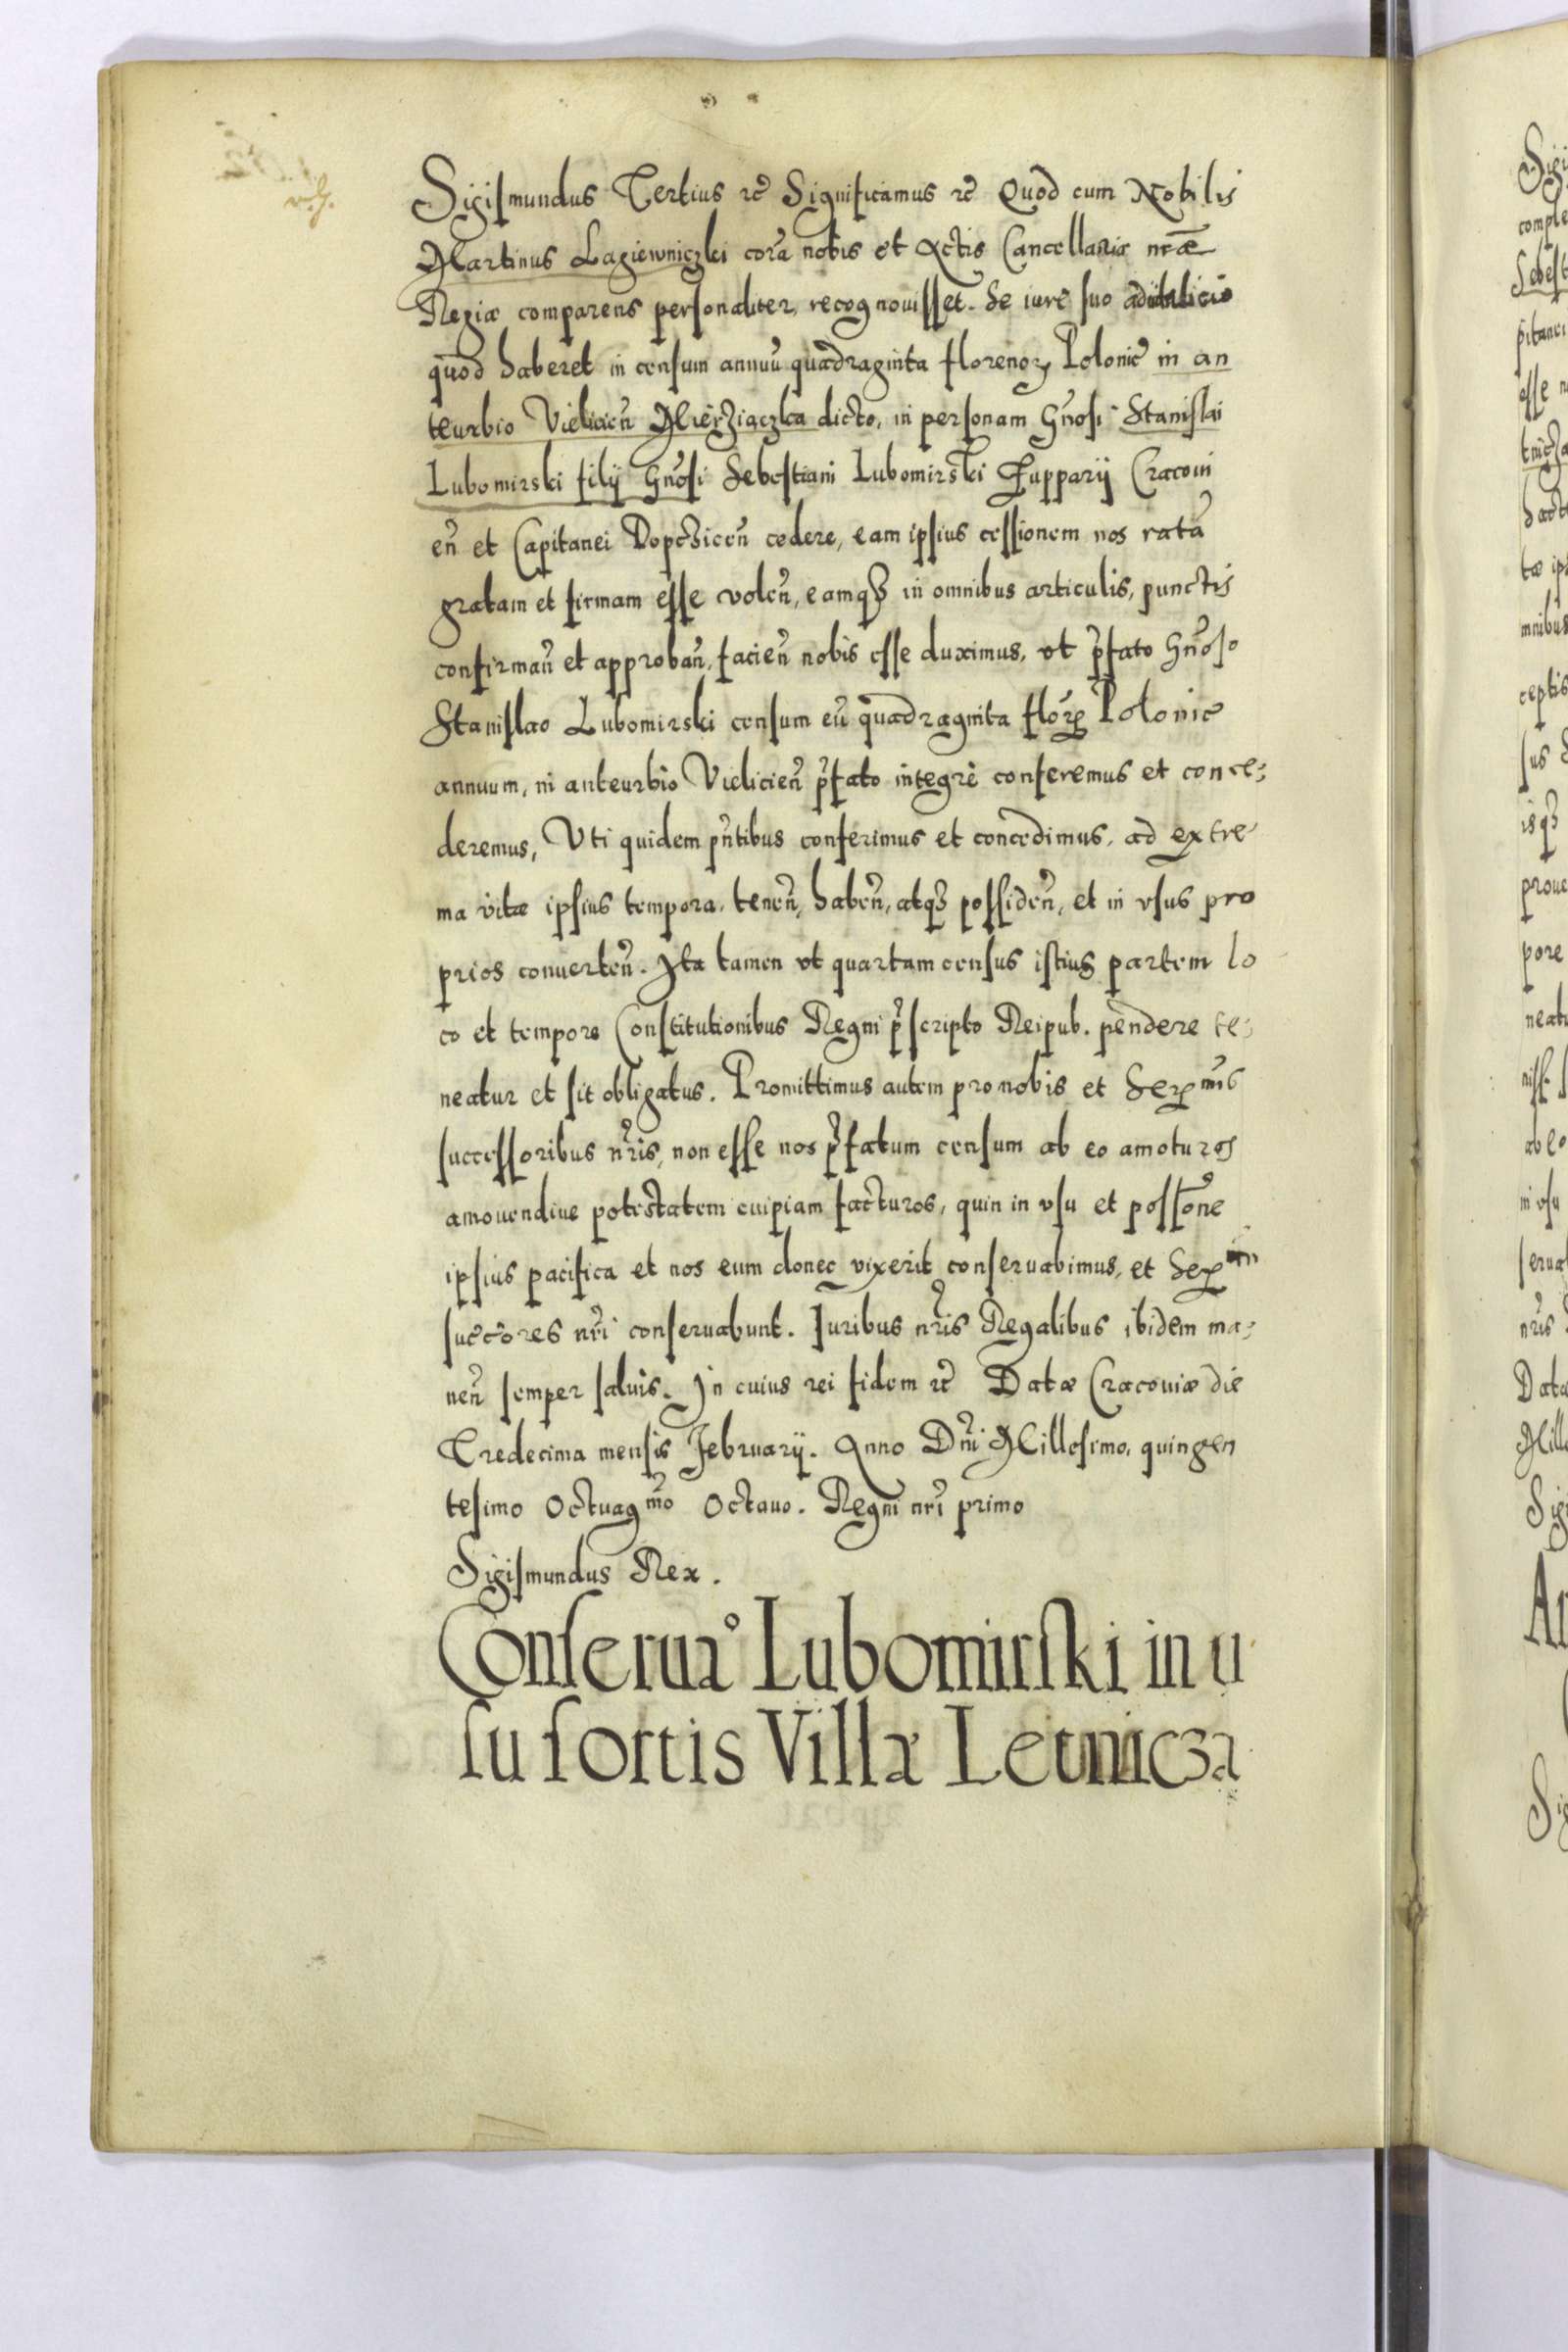 Sigismundus Tertius rc̃ Significamus rc̃ Quod cum Nobilis
Martinus Lagiewniczki corã nobis et Actis Cancellariæ nr̃æ
Regiæ comparens personaliter, recognouisset. Se iure suo
quod haberet in censum annuũ quadraginta florenoꝝ Polonic̃ in an
teurbio Vielicień Mierziączka dicto, in personam Gñosi Stanislai
Lubomirski filij Gñosi Sebestiani Lubomirski Zupparij Cracoui
eñ et Capitanei Dopcziceñ cedere, eam ipsius cessionem nos ratã
gratam et firmam esse voleñ, eamqꝫ in omnibus articulis, punctis
confirmañ et approbañ, facieñ nobis esse duximus, vt p̃fato Gñoso
Stanislao Lubomirski censum eũ quadraginta florꝝ Polonic̃
annuum, in anteurbio Vielicieñ p̃fato integrè conferemus et conce=
deremus, Vti quidem pñtibus conferimus et concedimus, ad extre
ma vitæ ipsius tempora, teneñ, habeñ, atqꝫ possideñ, et in vsus pro
prios conuerteñ. Ita tamen vt quartam census istius partem lo
co et tempore Constitutionibus Regni p̃scripto Reipub. pendere te=
neatur et sit obligatus. Promittimus autem pro nobis et Serꝑmis
successoribus nr̃is, non esse nos p̃fatum censum ab eo amoturos
amouendiue potestatem cuipiam facturos, quin in vsu et possõne
ipsius pacifica et nos eum donec vixerit conseruabimus, et
succõres nr̃i conseruabunt. Iuribus nr̃is Regalibus ibidem ma=
neñ semper saluis. In cuius rei fidem rc̃ Datæ Cracouiæ die
Tredecima mensis Februarij. Anno Dñi Millesimo, quingen
tesimo Octuagmo Octauo. Regni nr̃i primo
Sigismundus Rex.
Conserua° Lubomirski in u
su sortis Villæ Letnicza